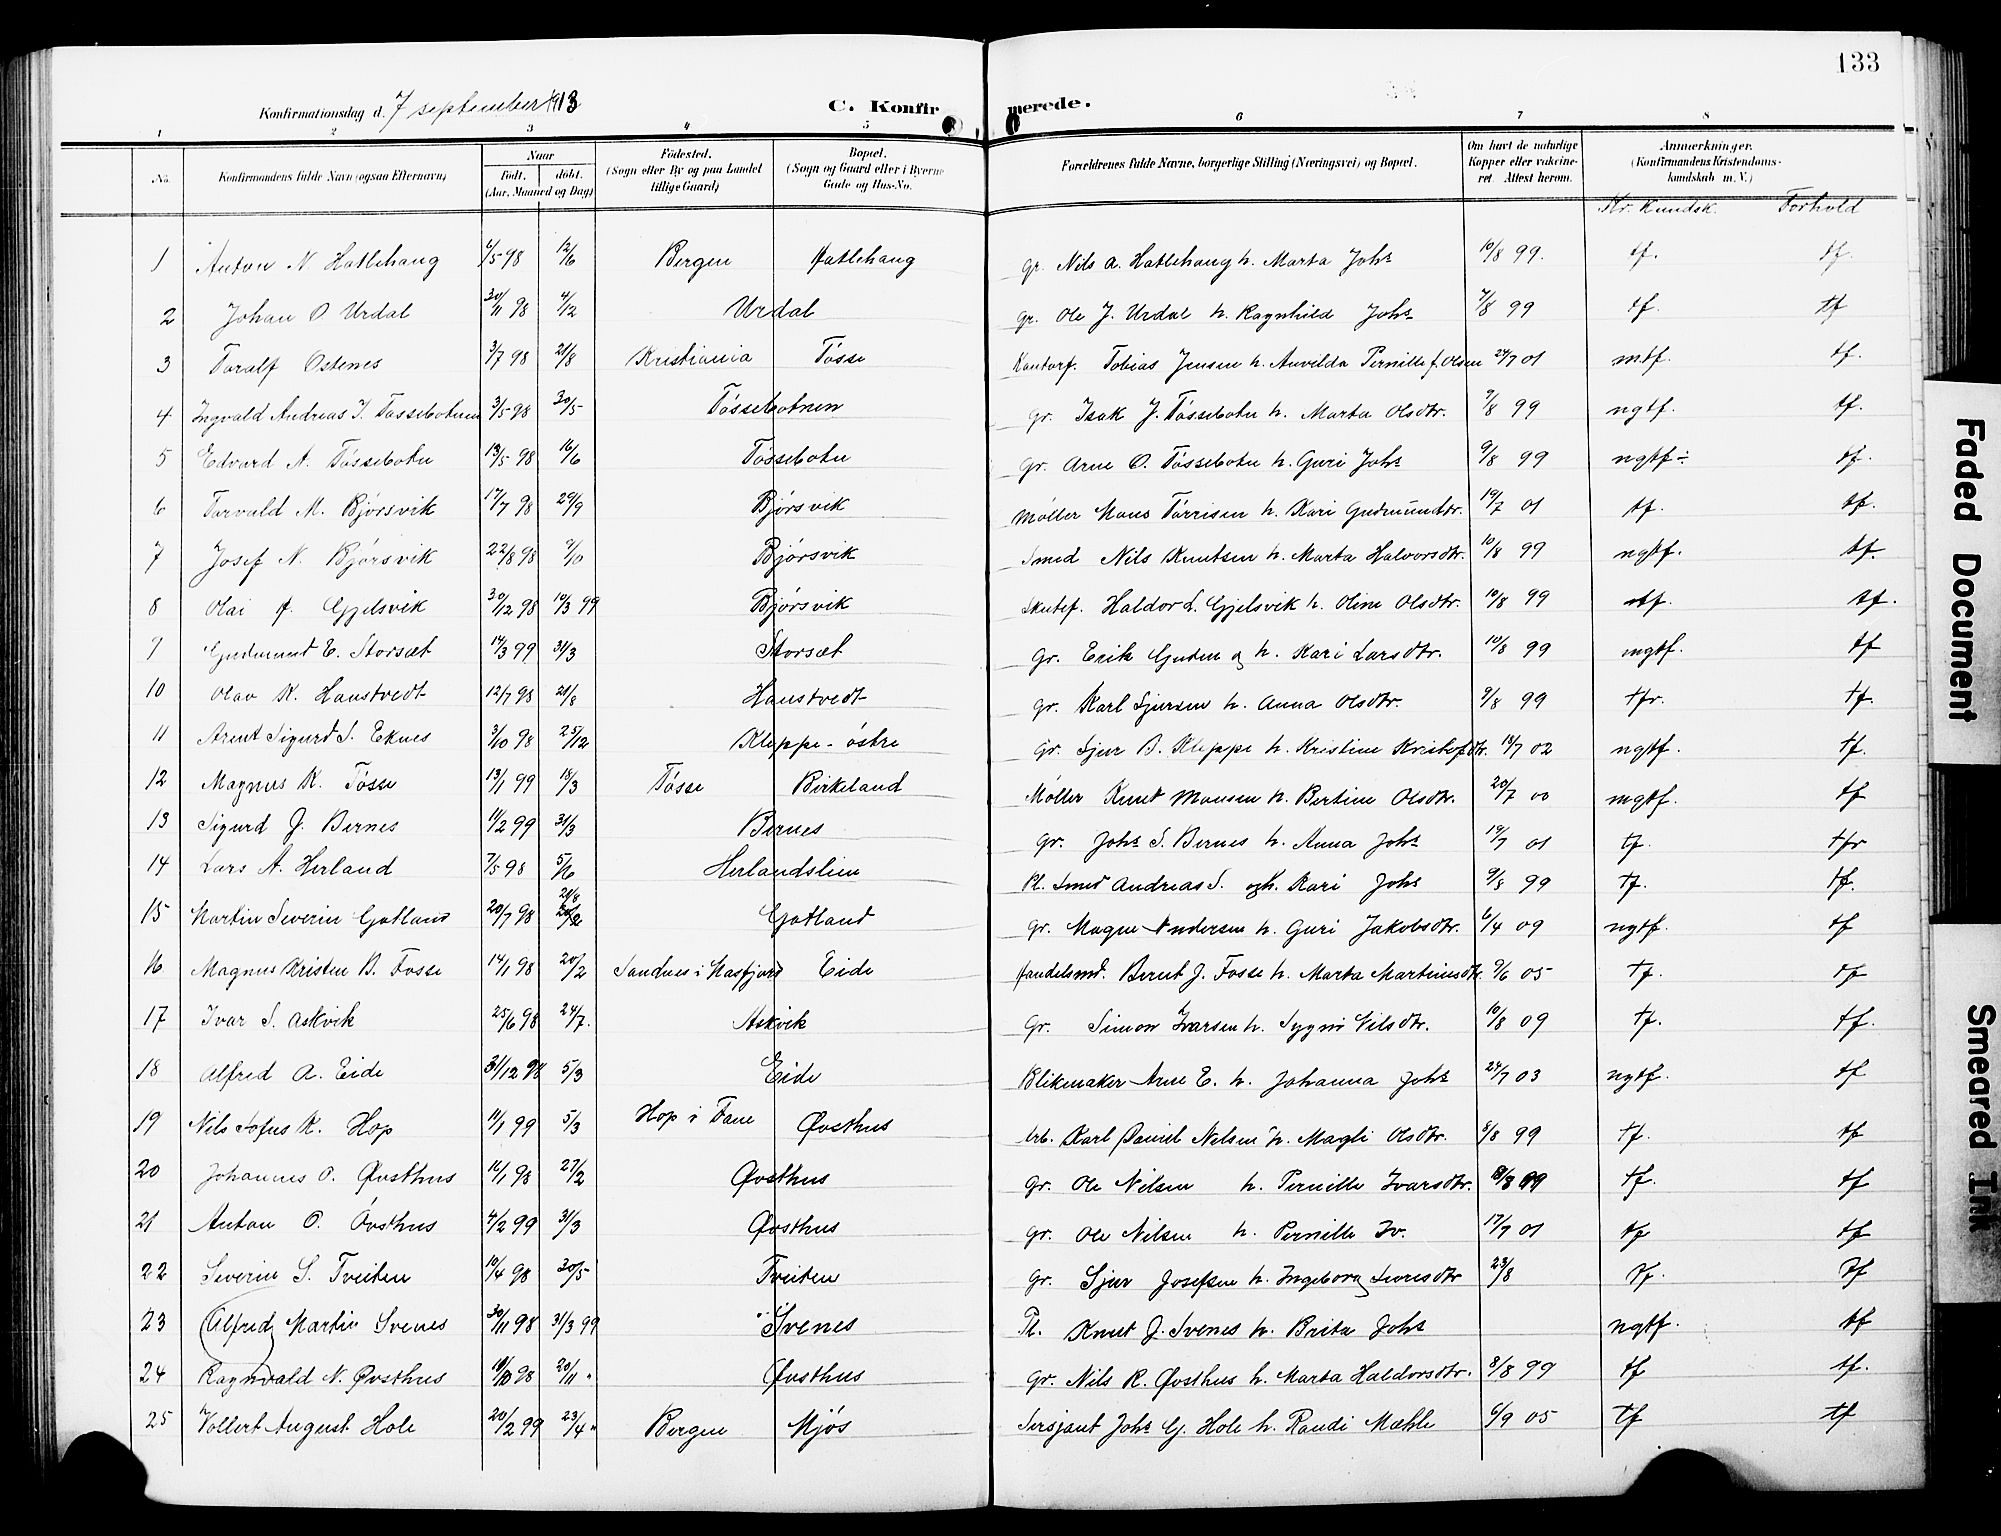 133
Konfirmationsdag d. 7 september 1913 C. Konfirmerede.
1 2 3 4 5 6 7 8
No. Konfirmandens fulde Navn (ogsaa Efternavn) Naar Født. døbt. (Aar, Maaned og Dag) Fødested. (Sogn eller By og paa Landet tillige Gaard) Bopæl. (Sogn og Gaard eller i Byerne Gade og Hus-No. Forældrenes fulde Navne, borgerlige Stilling (Næringsvei) og Bopæl. Om havt de naturlige Kopper eller vakcineret. Attest herom. Anmærkninger. (Konfirmandens Kristendomskundskab m. V.)
Kr. Kundsk. Forhold
1 Anton N. Hatlehaug 6/5 98 12/6 Bergen Hatlehaug Gr. Nils A. Hatlehaug h. Marta Johs 10/8 99. tf. tf.
2 Johan O Urdal 30/11 98 4/12 Urdal Gr. Ole J. Urdal h. Ragnhild Johs 7/8 99 tf. tf
3 Toralf Ostenes 3/7 98 21/8 Kristiania Tøsse Kontorf. Tobias Jensen h. Anvilda Pernille f. Olsen 24/7 01 mtf. tf.
4 Ingvald Andreas I. Tøssebotnen 3/5 98 30/5 Tøssebotnen Gr. Isak J. Tøssebotn h. Marta Olsdtr. 9/8 99 ngtf. tf.
5 Edvard A. Tøssebotn 13/5 98 16/6 Tøssebotn Gr. Arne O. Tøssebotn h. Guri Johs 9/8 99 ngtf ÷ tf.
6 Torvald M. Bjørsvik 17/7 98 29/9 Bjørsvik Møller Mons Tørrisen h. Kari Gudmundtr. 19/7 01 tf. tf.
7 Josef N. Bjørsvik 22/8 98 9/10 Bjørsvik Smed Nils Knutsen h. Marta Halvorsdtr. 10/8 99 ngtf. tf.
8 Olai H. Gjelsvik 30/12 98 19/3 99 Bjørsvik Skutef. Haldor L. Gjelsvik h. Oline Olsdtr. 10/8 99 tf. tf.
9 Gudmund E. Storsæt 14/3 99 31/3 Storsæt Gr. Erik Guden og h. Kari Larsdtr. 10/8 99 mgtf. tf
10 Olav K. Haustvedt 12/7 98 21/8 Haustvedt Gr. Karl Sjursen h. Anna Olsdtr. 9/8 99 tfr. tf.
11 Arent Sigurd S. Eknes 3/10 98 25/12 Kleppe - østre Gr. Sjur B. Kleppe h. Kristine Kristofdtr. 18/7 02 ngtf. tf.
12 Magnus K. Tøsse 13/1 99 18/3 Tøsse Birkeland Møller Knut Monsen h. Bertine Olsdtr. 20/7 00 mgtf. tf
13 Sigurd J. Bernes 11/2 99 31/3 Bernes Gr. Johs S. Bernes h. Anna Johs 19/7 01 tf. tfr
14 Lars A. Herland 7/5 98 5/6 Herlandslien Pl. Smed Andreas S. og h. Kari Johs 9/8 99 tf. tf.
15 Martin Severin Gotland 20/7 98 21/8 Gotland Gr. Mogne Andersen h. Guri Jakobsdtr. 6/4 09 ngtf. tf
16 Magnus Kristen B. Fosse 14/1 98 20/2 Sandnes i Masfjord Eide Handelsmd. Bernt J. Fosse h. Marta Martinusdtr. 9/6 05 tf. tf
17 Ivar S. Askvik 25/6 98 24/7. Askvik Gr. Simon Ivarsen h. Sygni Nilsdtr. 10/8 09 tf. tf.
18 Alfred A. Eide 31/12 98 5/3 Eide Blikmaker Arne E. h. Johanna Johs 24/7 03 ngtf. tf
19 Nils Sofus K. Hop 11/1 99 5/3 Hop i Fane Øvsthus Arb. Karl Daniel Nelsen h. Magli Olsdtr. 8/8 99 tf. tf
20 Johannes O. Øvsthus 16/1 98 27/2 Øvsthus Gr. Ole Nilsen h. Pernille Ivarsdtr. 8/8 99 tf. tf
21 Anton O. Øvsthus 4/2 99 31/3 Øvsthus Gr. Ole Nilsen h. Pernille Iv. 17/7 01 tf tf
22 Severin S. Tveiten 10/4 98 30/5 Tveiten Gr. Sjur Josefsen h. Ingeborg Siversdtr 23/8 tf. tf
23 Alfred Martin Svenes 30/11 98 31/3 99 Svenes Pl. Knut J. Svenes h. Brita Johs ngtf. tf
24 Ragnvald N. Øvsthus 10/10 98 20/11 " Øvsthus Gr. Nils R. Øvsthus h. Marta Haldorsdtr. 8/8 99 tf tf.
25 Vollert August Hole 20/2 99 23/4 " Bergen Mjøs Sersjant Johs G. Hole h. Randi Mæhle 6/9 05 tf tf
Faded Document
Smeared Ink